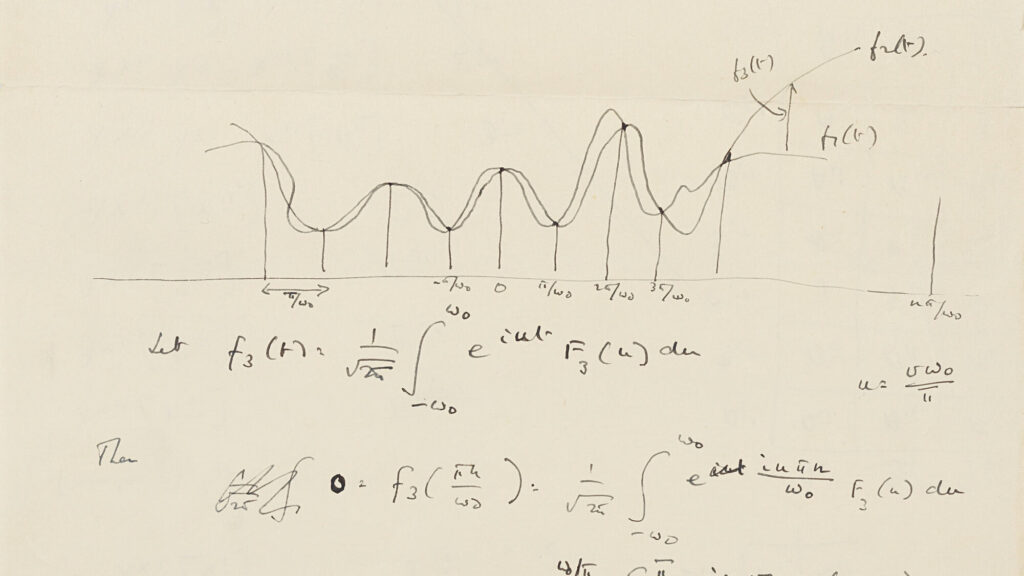 f₂(t).
f₃(t)
f₁(t)
π/ω₀ -π/ω₀ 0 π/ω₀ 2π/ω₀ 3π/ω₀ nπ/ω₀
Let f₃(t) = 1/√2π ∫_{-ω₀}^{ω₀} e^{iut} F₃(u) du
u = vω₀/π
Then 0 = f₃(πn/ω₀) = 1/√2π ∫_{-ω₀}^{ω₀} e^{iuπn/ω₀} F₃(u) du